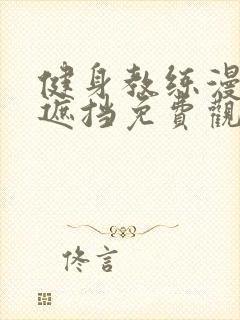 健身教练漫
遮挡免費觀
佟言